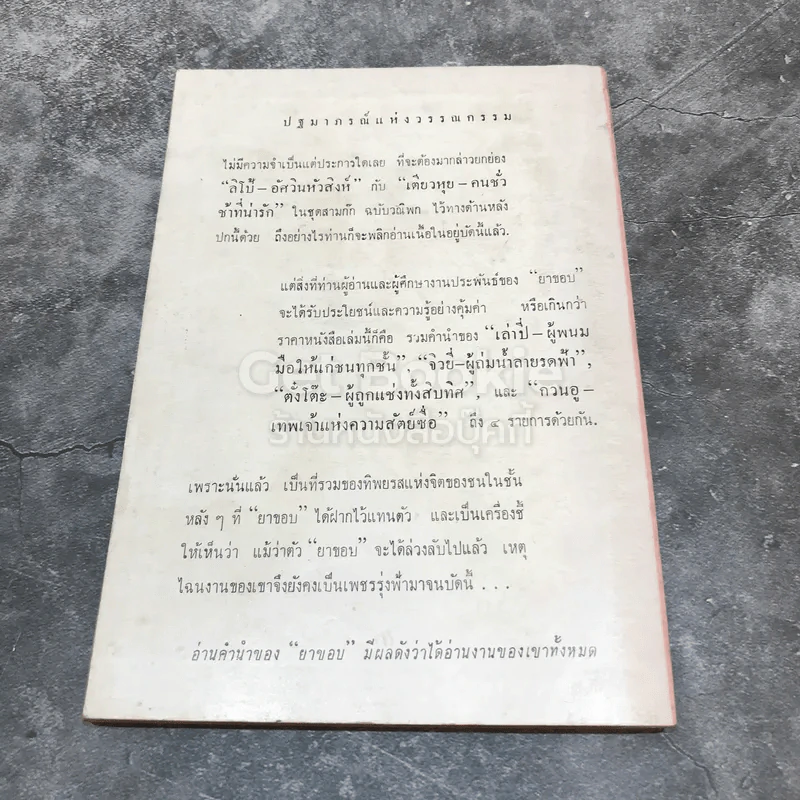 ปฐมาภรณ์แห่งวรรณกรรม
ไม่มีความจำเป็นแต่ประการใดเลย ที่จะต้องมากล่าวยกย่อง
“ลิโป้ – อัศวินหัวสิงห์” กับ “เตียวหุย – คนชั่ว
ช้าที่น่ารัก” ในชุดสามก๊ก ฉบับวณิพก ไว้ทางด้านหลัง
ปกนี้ด้วย ถึงอย่างไรท่านก็จะพลิกอ่านเนื้อในอยู่บัดนี้แล้ว.
แต่สิ่งที่ท่านผู้อ่านและผู้ศึกษางานประพันธ์ของ “ยาขอบ”
จะได้รับประโยชน์และความรู้อย่างคุ้มค่า หรือเกินกว่า
ราคาหนังสือเล่มนี้ก็คือ รวมคำนำของ “เล่าปี่ – ผู้พนม
มือให้แก่ชนทุกชั้น” “จิวยี่–ผู้ถ่มน้ำลายรดฟ้า”,
“ตั๋งโต๊ะ – ผู้ถูกแช่งทั้งสิบทิศ”, และ “กวนอู –
เทพเจ้าแห่งความสัตย์ซื่อ” ถึง ๔ รายการด้วยกัน.
Get Bookie
ร้านหนังสือบุ๊คกี้
เพราะนั่นแล้ว เป็นที่รวมของทิพยรสแห่งจิตของชนในชั้น
หลัง ๆ ที่ “ยาขอบ” ได้ฝากไว้แทนตัว และเป็นเครื่องชี้
ให้เห็นว่า แม้ว่าตัว “ยาขอบ” จะได้ล่วงลับไปแล้ว เหตุ
ไฉนงานของเขาจึงยังคงเป็นเพชรรุ่งฟ้ามาจนบัดนี้ . . .
อ่านคำนำของ “ยาขอบ” มีผลดังว่าได้อ่านงานของเขาทั้งหมด